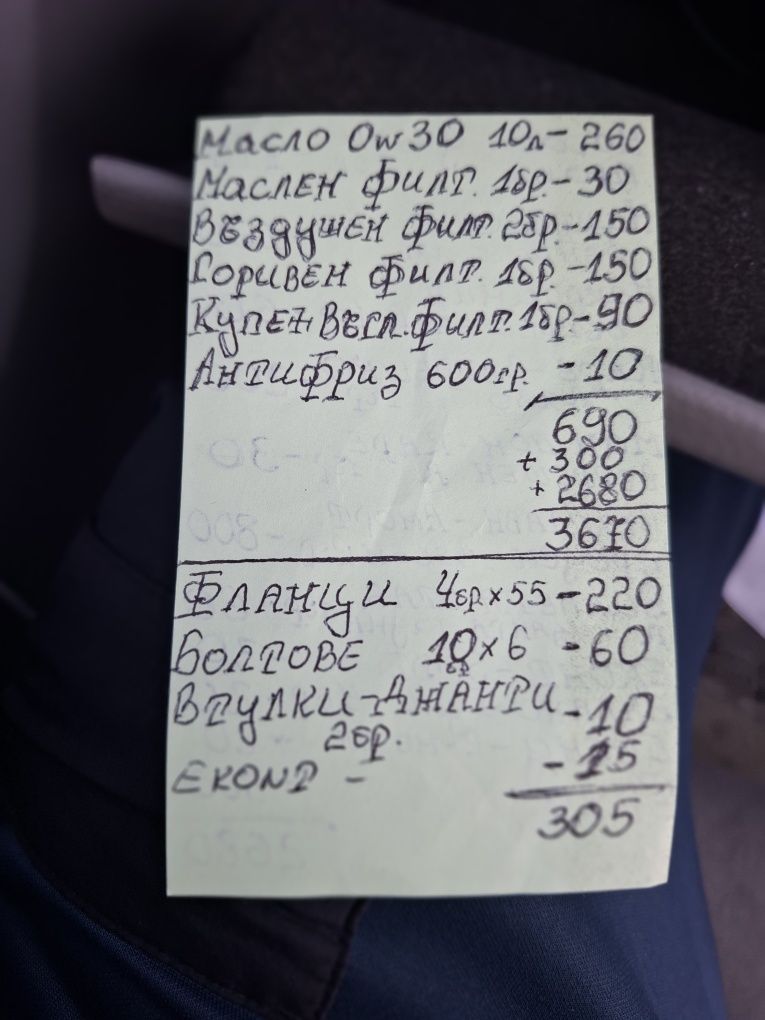 Масло 0w30 10л - 260
Маслен филт. 1бр. - 30
Въздушен филт. 2бр. - 150
Горивен филт. 1бр. - 150
Купен въгл. филт. 1бр. - 90
Антифриз 600гр. - 10
690
+ 300
+ 2680
3670
Фланци 4бр x 55 - 220
Болтове 10 x 6 - 60
Втулки - Джанти - 10
2бр.
Еконт - - 15
305